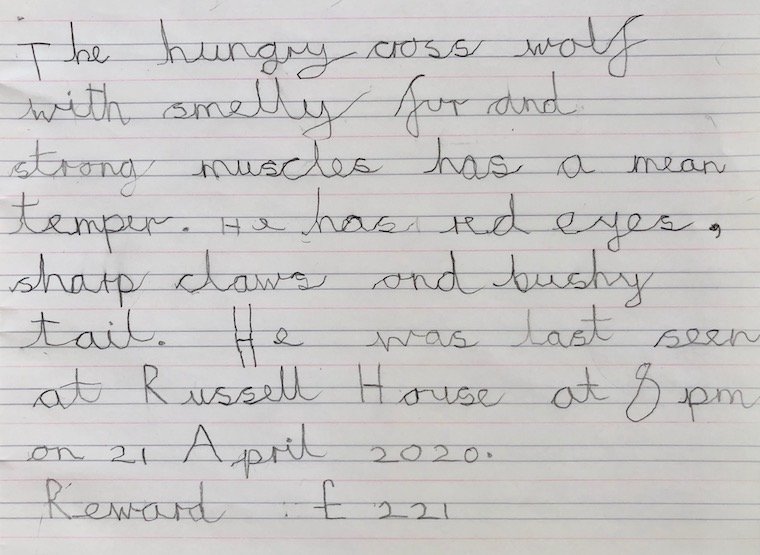 The hungry cross wolf
with smelly fur and
strong muscles has a mean
temper. He has red eyes,
sharp claws and bushy
tail. He was last seen
at Russell House at 8 pm
on 21 April 2020.
Reward : £ 221